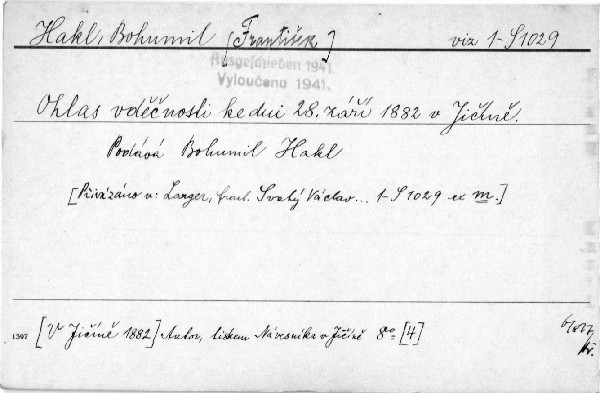 Hakl, Bohumil [František] viz 1-S1029
Ausgeschieden 1941.
Vyloučeno 1941.
Ohlas vděčnosti ke dni 28. září 1882 v Jičíně.
Podává Bohumil Hakl
[Přivázáno v: Langer, frant. Svatý Václav... 1-S1029 ex m.]
1397 [V Jičíně 1882] Autor, tiskem Návesníka v Jičíně 8° [4]